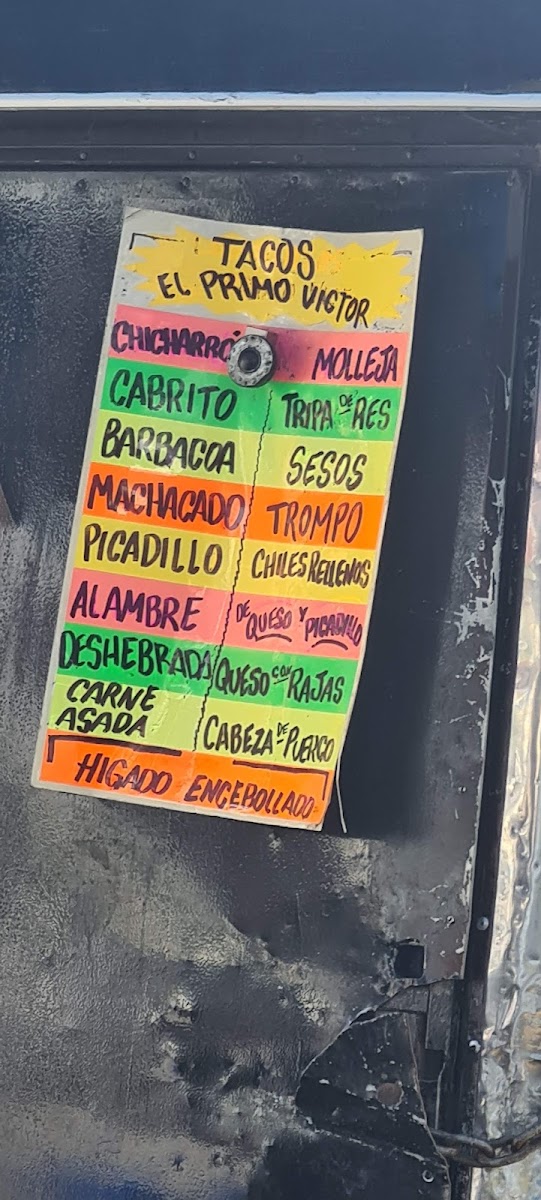 TACOS
EL PRIMO VICTOR
CHICHARRÓ
CABRITO
BARBACOA
MACHACADO
PICADILLO
ALAMBRE
DESHEBRADA
CARNE
ASADA
MOLLEJA
TRIPA DE RES
SESOS
TROMPO
CHILES RELLENOS
DE QUESO Y PICADILLO
QUESO CON RAJAS
CABEZA DE PUERCO
HIGADO ENCEBOLLADO